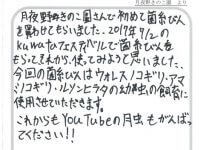 月夜野きのこ園 より
月夜野きのこ園さんで初めて菌糸びん
を買わせてもらいました。2017年7/2の
KUWATAフェスティバルで菌糸びんを
もらってきれから、使ってみようと思いました。
今回の菌糸びんはウォレスノコギリ・アマ
ミノコギリ・ルソンヒラタの幼虫の飼育に
使用させていただきます。
これからもYouTubeの月虫もがんばっ
てください!!